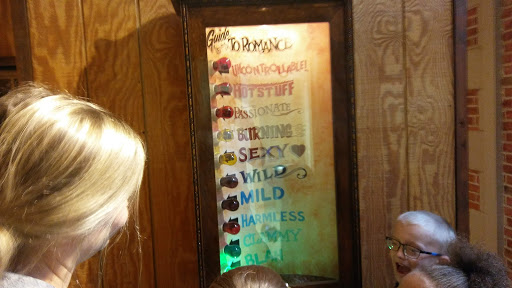 Guide
To ROMANCE
UNCONTROLLABLE!
HOT STUFF
PASSIONATE
BURNING
SEXY
WILD
MILD
HARMLESS
CLAMMY
BLAH